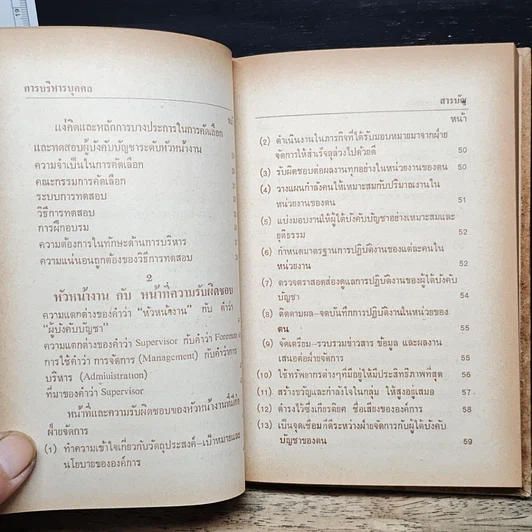 การบริหารบุคคล
แง่คิดและหลักการบางประการในการคัดเลือก
และทดสอบผู้บังคับบัญชาระดับหัวหน้างาน
ความจำเป็นในการคัดเลือก
คณะกรรมการคัดเลือก
ระบบการทดสอบ
วิธีการทดสอบ
การฝึกอบรม
ความต้องการในทักษะด้านการบริหาร
ความแน่นอนถูกต้องของวิธีการทดสอบ
2
หัวหน้างาน กับ หน้าที่ความรับผิดชอบ
ความแตกต่างของคำว่า "หัวหน้างาน" กับ คำว่า
"ผู้บังคับบัญชา"
ความแตกต่างของคำว่า Supervisor กับคำว่า Foreman
การใช้คำว่า การจัดการ (Management) กับคำว่าการ
บริหาร (Administration)
ที่มาของคำว่า Supervisor
หน้าที่และความรับผิดชอบของหัวหน้างานที่มีต่อ
ฝ่ายจัดการ
(1) ทำความเข้าใจเกี่ยวกับวัตถุประสงค์–เป้าหมายและ
นโยบายขององค์การ
สารบัญ
หน้า
(2) ดำเนินงานในภารกิจที่ได้รับมอบหมายมาจากฝ่าย
จัดการให้สำเร็จลุล่วงไปด้วยดี 50
(3) รับผิดชอบต่อผลงานทุกอย่างในหน่วยงานของตน 50
(4) วางแผนกำลังคนให้เหมาะสมกับปริมาณงานใน
หน่วยงานของตน 51
(5) แบ่งมอบงานให้ผู้ใต้บังคับบัญชาอย่างเหมาะสมและ
ยุติธรรม 52
(6) กำหนดมาตรฐานการปฏิบัติงานของแต่ละคนใน
หน่วยงาน 52
(7) ตรวจตราสอดส่องดูแลการปฏิบัติงานของผู้ใต้บังคับ
บัญชา 54
(8) ติดตามผล–จดบันทึกการปฏิบัติงานในหน่วยของ
ตน 55
(9) จัดเตรียม–รวบรวมข่าวสาร ข้อมูล และผลงาน
เสนอต่อฝ่ายจัดการ 55
(10) ใช้ทรัพยากรต่างๆที่มีอยู่ให้มีประสิทธิภาพที่สุด 56
(11) สร้างขวัญและกำลังใจในกลุ่ม ให้สูงอยู่เสมอ 57
(12) ดำรงไว้ซึ่งเกียรติยศ ชื่อเสียงขององค์การ 58
(13) เป็นจุดเชื่อมที่ดีระหว่างฝ่ายจัดการกับผู้ใต้บังคับ
บัญชาของตน 59